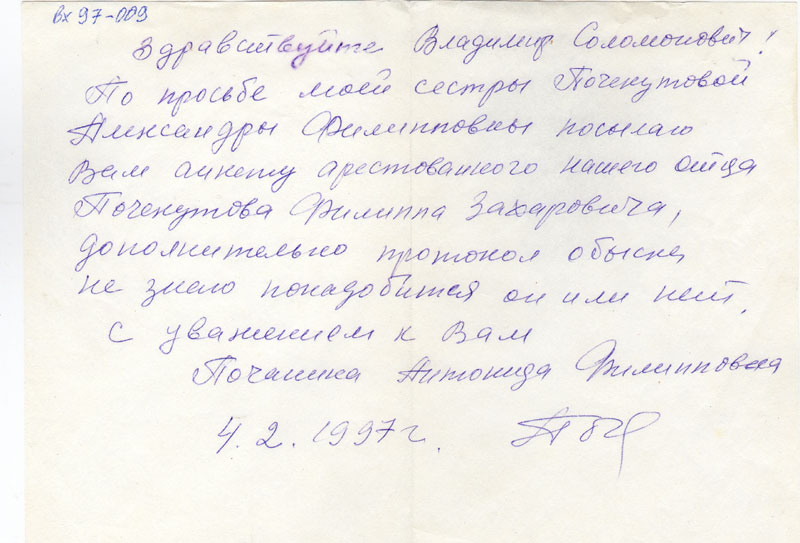 Вх 97-009
Здравствуйте Владимир Соломонович!
По просьбе моей сестры Почекутовой
Александры Филипповны посылаю
Вам анкету арестованного нашего отца
Почекутова Филиппа Захаровича,
дополнительно протокол обыска,
не знаю понадобится он или нет.
С уважением к Вам
Антонида Филипповна
4.2.1997 г.